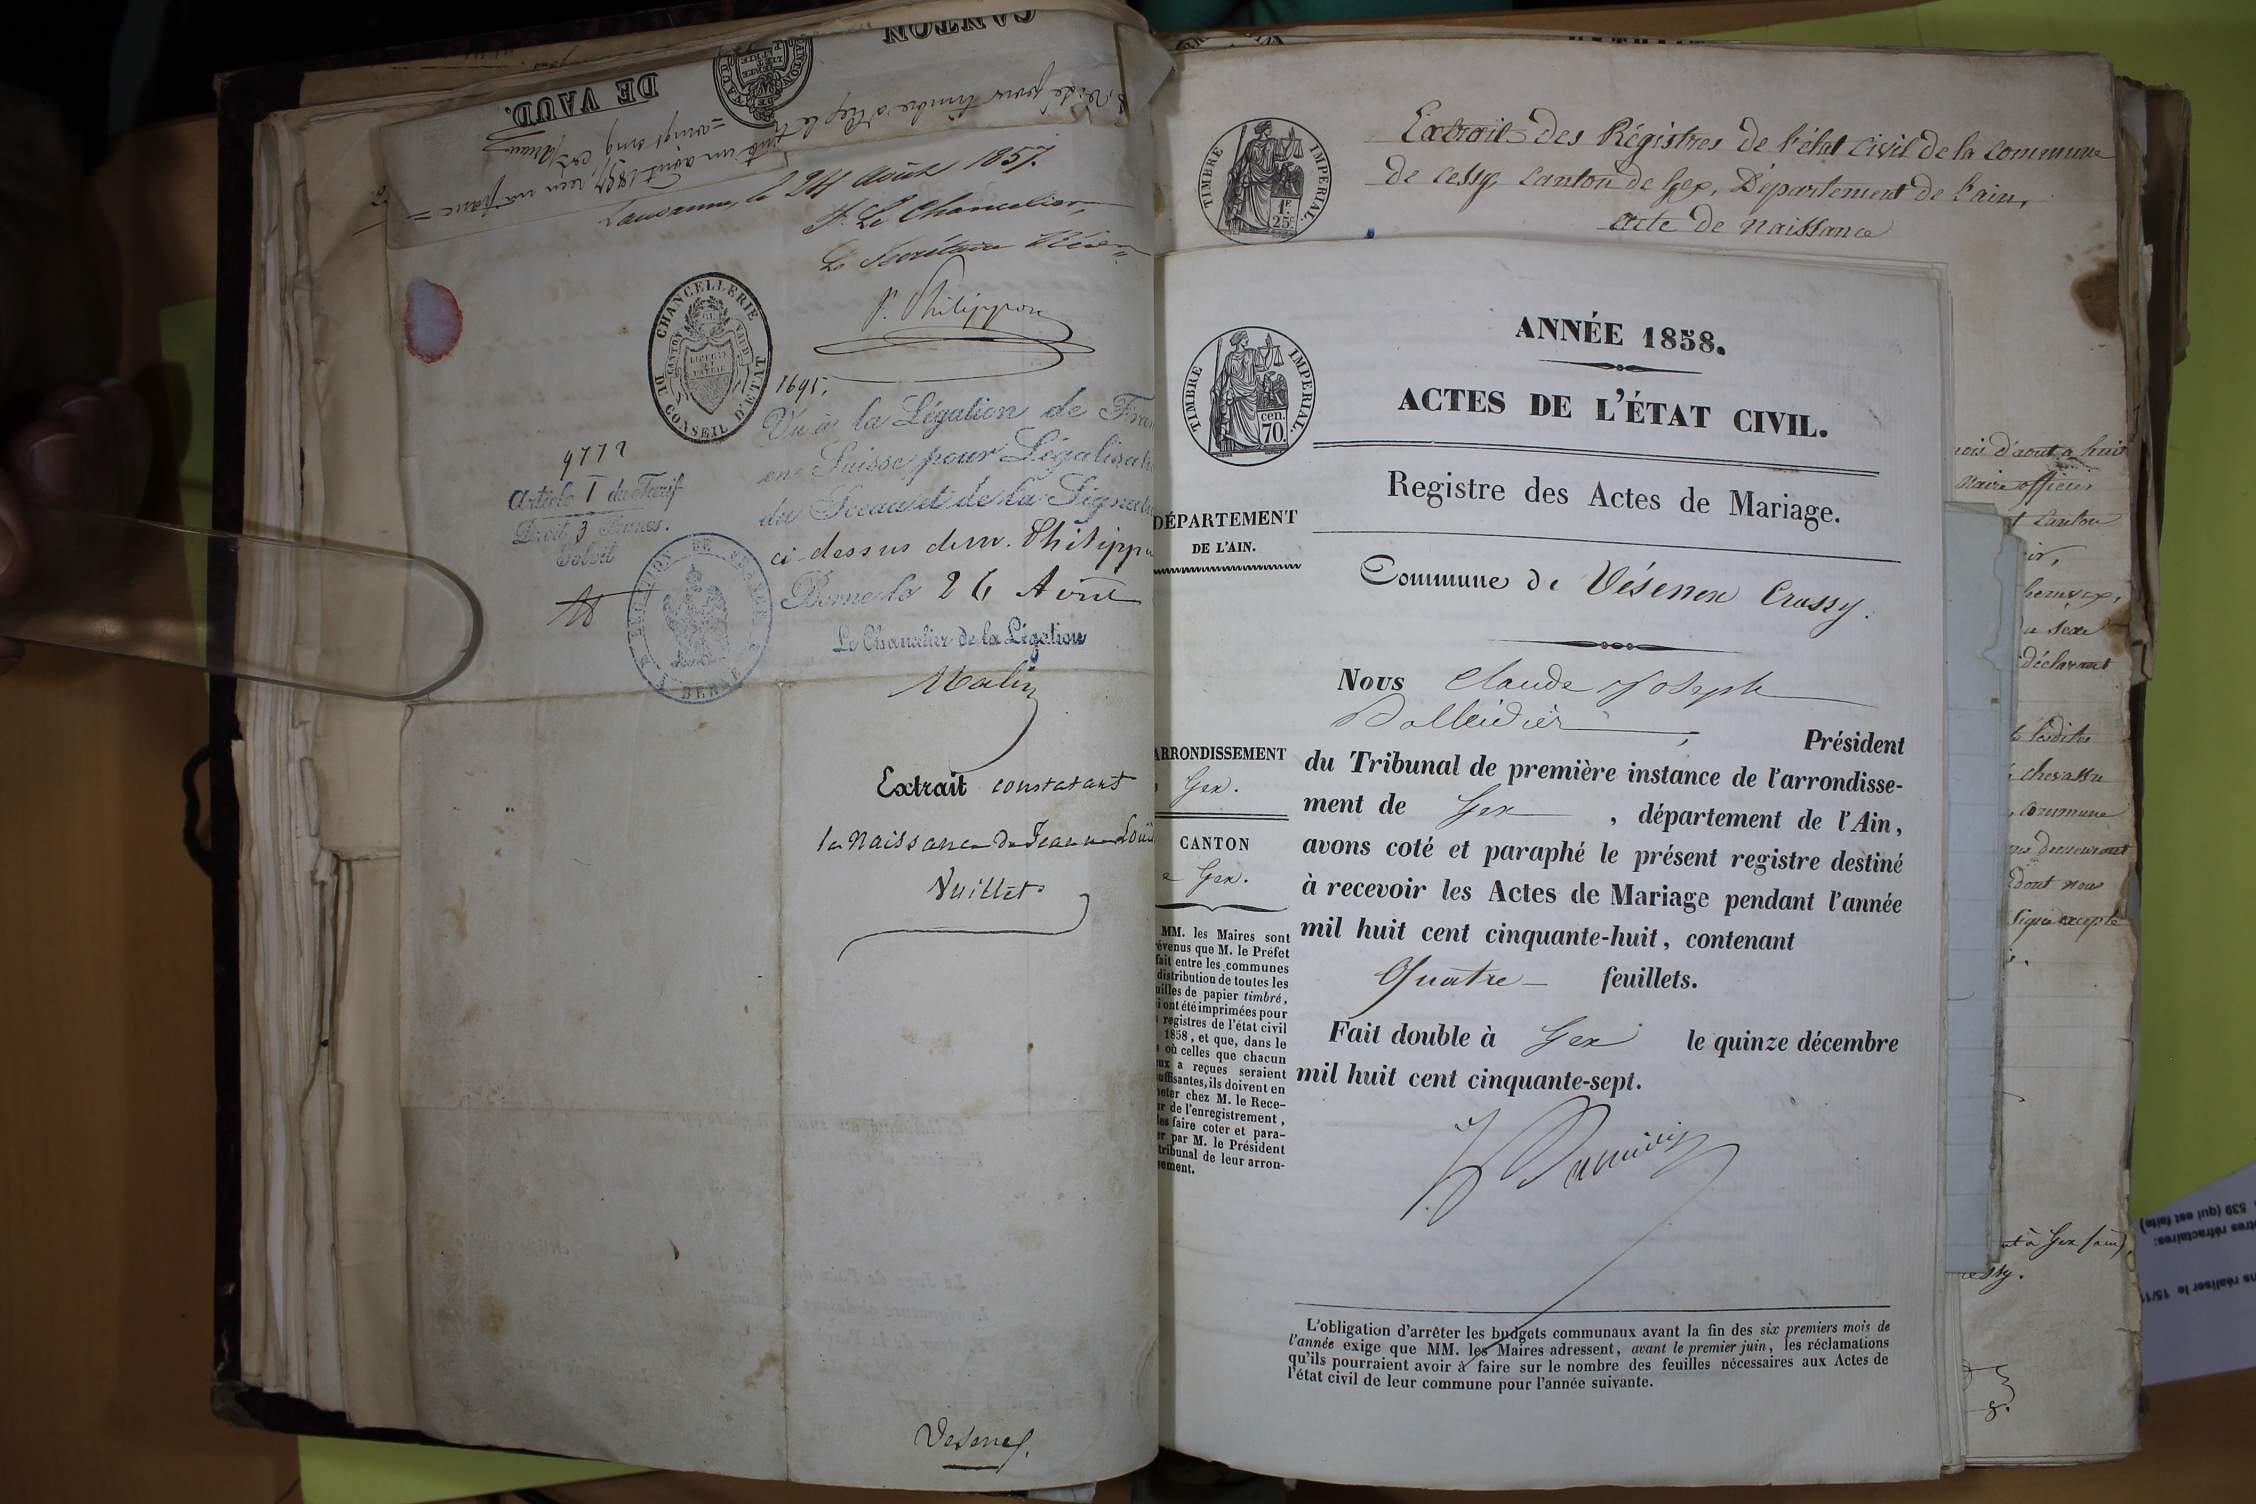 CANTON
DE VAUD.
Lausanne, le 24 Août 1857.
Pr Le Chancelier,
Le Secrétaire
P. Philippon
CHANCELLERIE
DU CONSEIL D'ETAT
CANTON DE VAUD
LIBERTE ET PATRIE
1691.
Vu à la Légation de Fran
en Suisse pour Légalisati
du Sceau et de la Signatu
ci dessus de m. Philippo
Berne le 26 Août
Le Chancelier de la Légation
9772
Article I du Tarif
Droit 3 Francs.
LEGATION DE FRANCE
A BERNE
Extrait constatant
la Naissance de Jeanne Loui
Vuillet
Vesenex.
TIMBRE IMPERIAL.
1F.
25c
Extrait des Régistres de l'état civil de la commune
de cessy, canton de Gex, Département de l'ain,
acte de naissance
TIMBRE IMPERIAL.
cen.
70.
ANNÉE 1858.
ACTES DE L'ÉTAT CIVIL.
Registre des Actes de Mariage.
DÉPARTEMENT
DE L'AIN.
Commune de Vésenex Crassy.
Nous Claude Joseph
Président
ARRONDISSEMENT
Gex.
du Tribunal de première instance de l'arrondisse-
ment de Gex, département de l'Ain,
avons coté et paraphé le présent registre destiné
à recevoir les Actes de Mariage pendant l'année
mil huit cent cinquante-huit, contenant
Quatre feuillets.
Fait double à Gex le quinze décembre
mil huit cent cinquante-sept.
CANTON
e Gex.
MM. les Maires sont
évenus que M. le Préfet
fait entre les communes
distribution de toutes les
uilles de papier timbré,
i ont été imprimées pour
s registres de l'état civil
1858, et que, dans le
s où celles que chacun
eux a reçues seraient
suffisantes, ils doivent en
heter chez M. le Rece-
ur de l'enregistrement,
les faire coter et para-
er par M. le Président
tribunal de leur arron-
sement.
L'obligation d'arrêter les budgets communaux avant la fin des six premiers mois de
l'année exige que MM. les Maires adressent, avant le premier juin, les réclamations
qu'ils pourraient avoir à faire sur le nombre des feuilles nécessaires aux Actes de
l'état civil de leur commune pour l'année suivante.
mois d'aout a huit
Maire officier
canton
du sexe
déclarant
lesdites
chevassu
commune
demeurant
dont nous
signé excepté
à Gex (ain)
cessy.
539 (qui est faite)
ntres réfractaires:
ns réaliser le 15/11